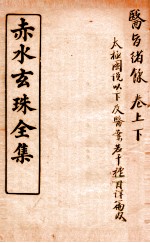 醫旨緒餘 卷上下
太極圖說以下及醫案若干種目詳篇端
赤水玄珠全集